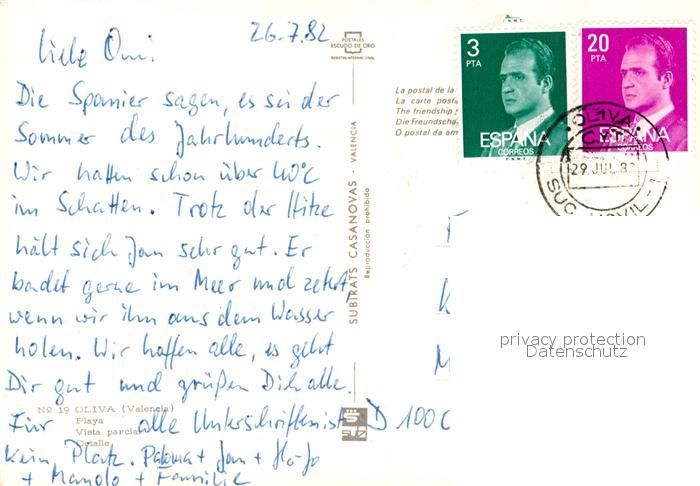 26.7.82
Liebe Omi.
Die Spanier sagen, es sei der
Sommer des Jahrhunderts.
Wir hatten schon über 40°C
im Schatten. Trotz der Hitze
hält sich Jan sehr gut. Er
badet gerne im Meer und zetert,
wenn wir ihn aus dem Wasser
holen. Wir hoffen alle, es geht
Dir gut und grüßen Dich alle.
Für alle Unterschriften ist
kein Platz. Paloma + Jan + Ha-Jo
+ Manolo + Familie
Nº 19 OLIVA (Valencia)
Playa
Vista parcial
Detalle
POSTALES
ESCUDO DE ORO
SUBIRATS CASANOVAS - VALENCIA
Reproducción prohibida
La postal de la
La carte post
The friendship
Die Freundscha
O postal da am
3
PTA
ESPAÑA
CORREOS
20
PTA
ESPAÑA
CORREOS
OLIVA
29 JUL 82
SUC MOVIL-1
D 1000
privacy protection
Datenschutz